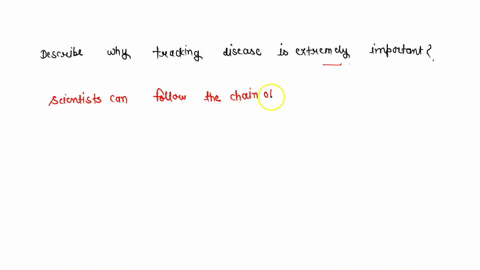 Describe why tracking disease is extremely important?
scientists can follow the chain of